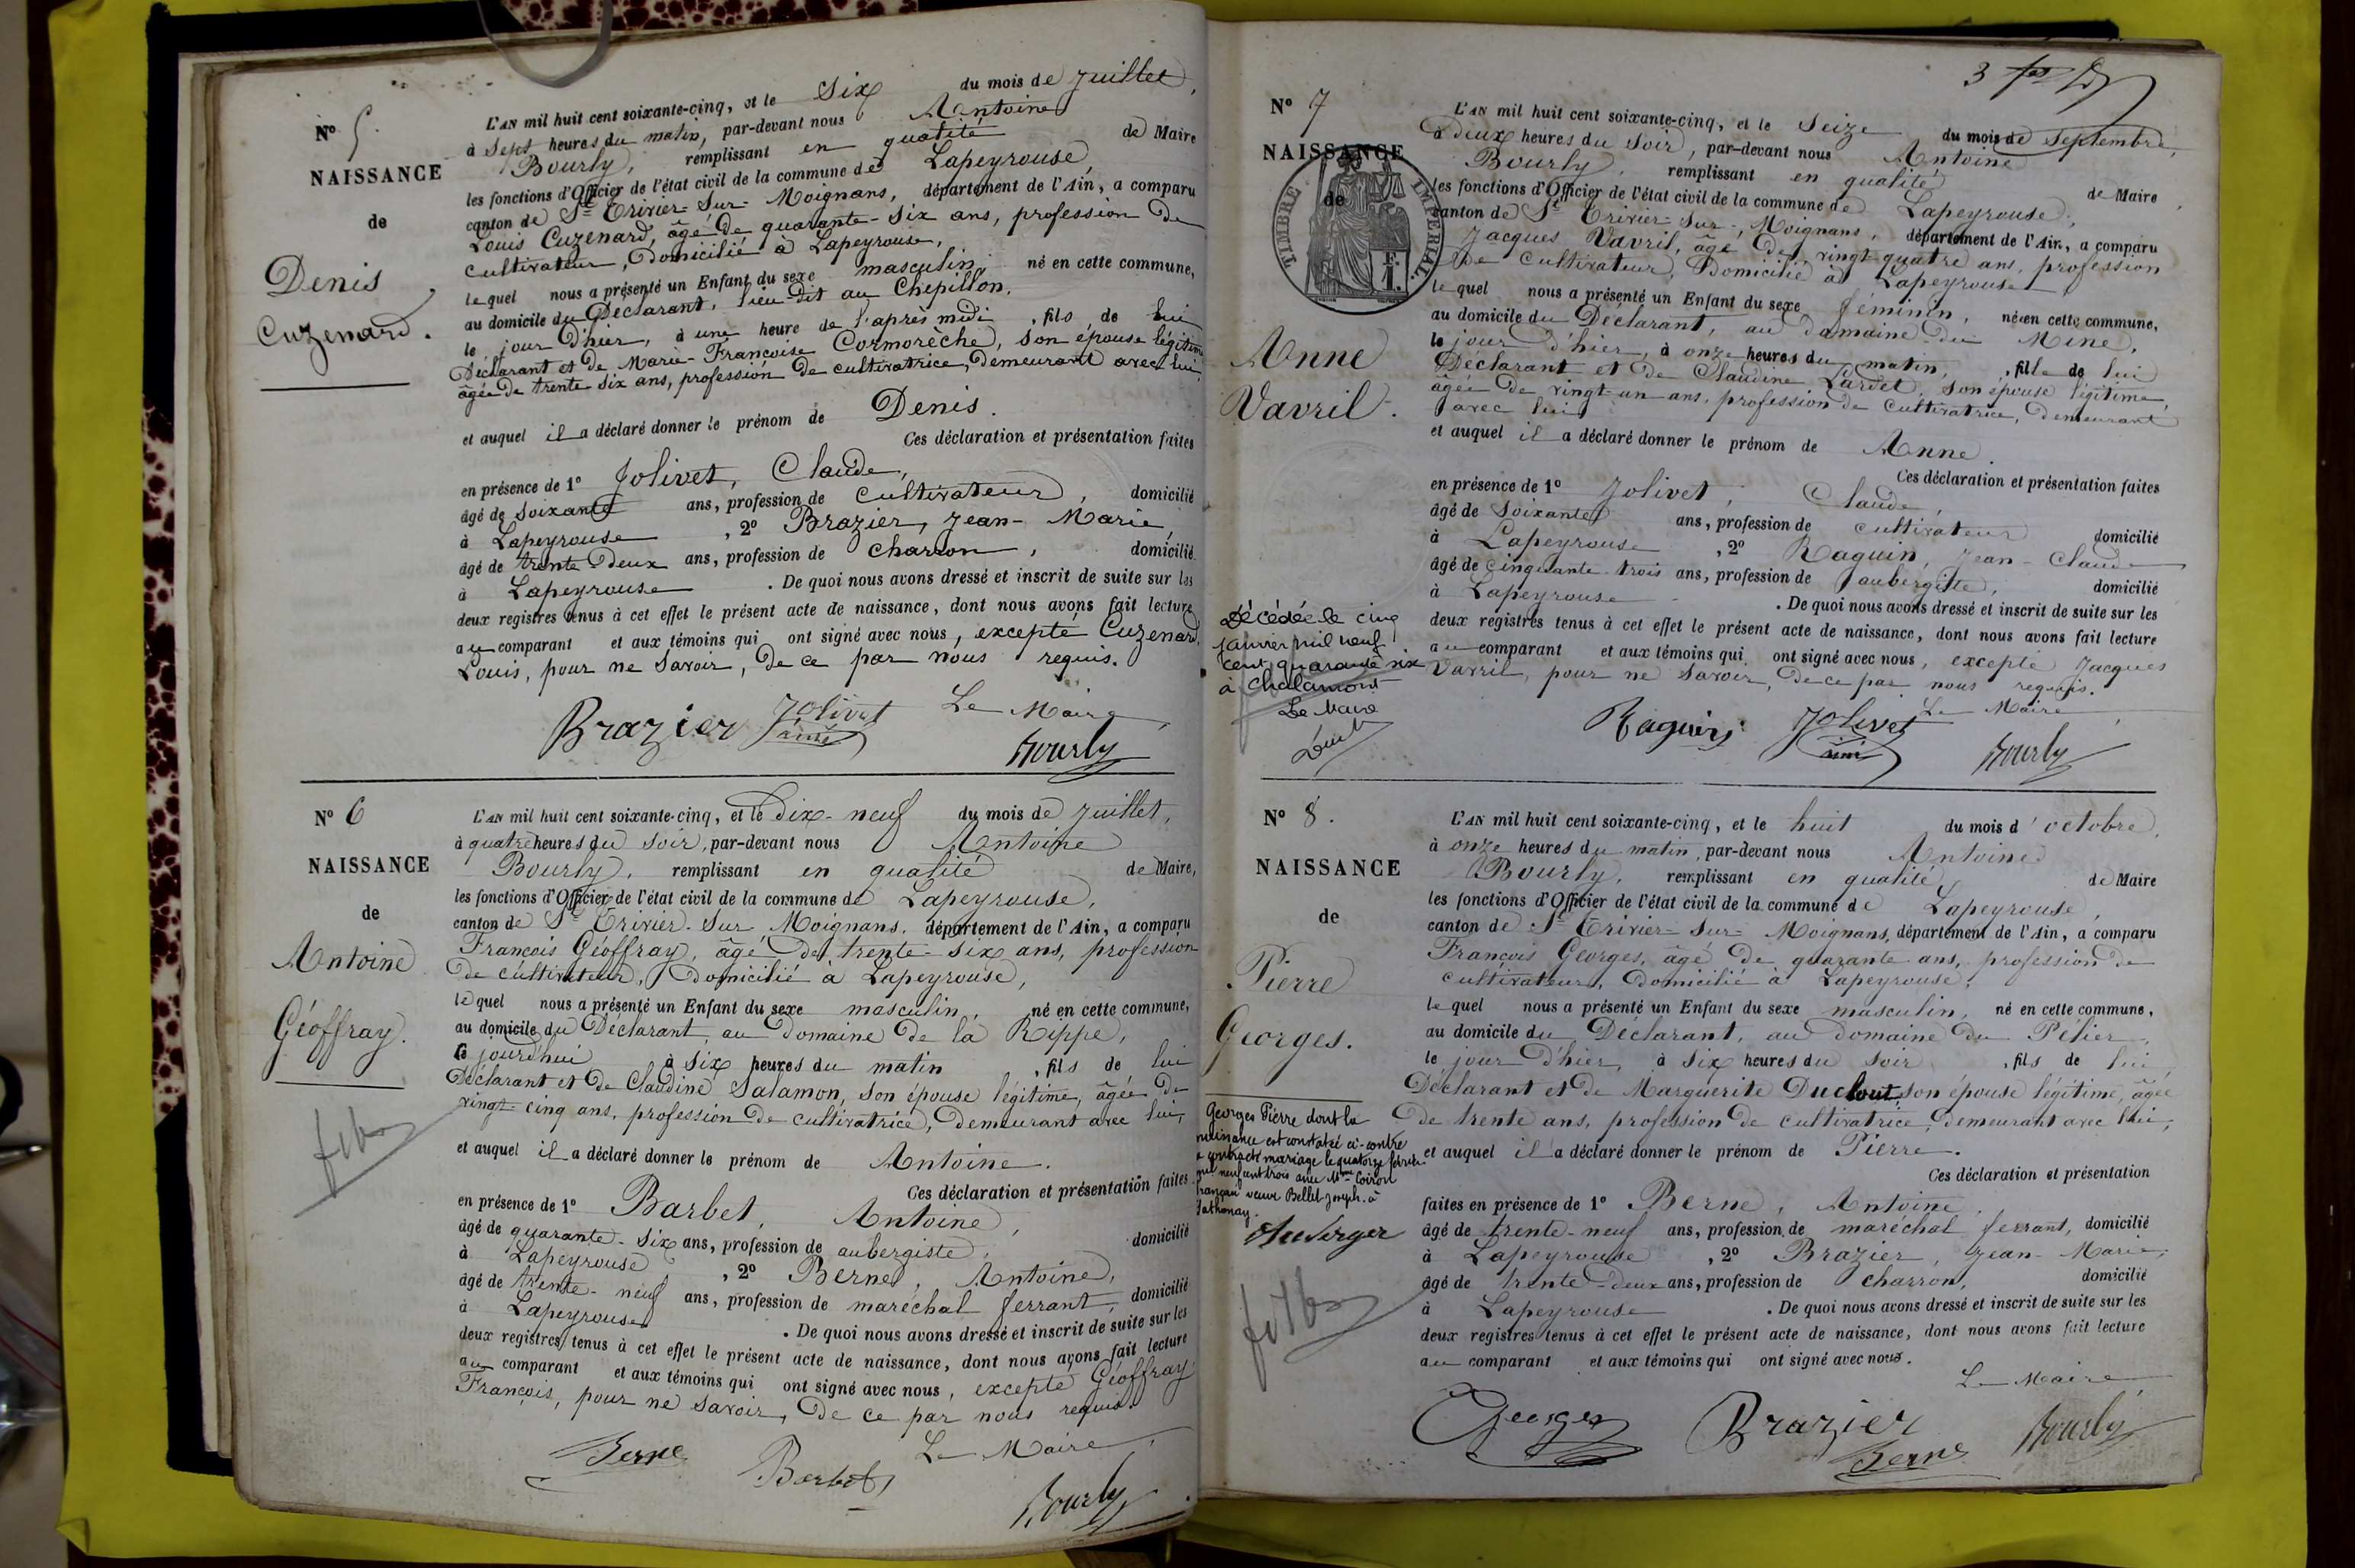 N° 5.
NAISSANCE
de
Denis
Cuzenard.
L'AN mil huit cent soixante-cinq, et le Six du mois de Juillet,
à Sept heures du matin, par-devant nous Antoine
Bourly, remplissant en qualité de Maire
les fonctions d'Officier de l'état civil de la commune de Lapeyrouse,
canton de St Trivier-Sur-Moignans, département de l'Ain, a comparu
Louis Cuzenard, âgé de quarante-six ans, profession de
cultivateur, domicilié à Lapeyrouse,
lequel nous a présenté un Enfant du sexe masculin, né en cette commune,
au domicile du Déclarant, lieu-dit au Chepillon,
le jour d'hier, à une heure de l'après midi, fils de lui
Déclarant et de Marie-Françoise Cormorèche, son épouse légitime
âgée de trente six ans, profession de cultivatrice, demeurant avec lui,
et auquel il a déclaré donner le prénom de Denis.
Ces déclaration et présentation faites
en présence de 1° Jolivet, Claude,
âgé de soixante ans, profession de cultivateur, domicilié
à Lapeyrouse, 2° Brazier, Jean-Marie,
âgé de trente deux ans, profession de charron, domicilié
à Lapeyrouse. De quoi nous avons dressé et inscrit de suite sur les
deux registres tenus à cet effet le présent acte de naissance, dont nous avons fait lecture
au comparant et aux témoins qui ont signé avec nous, excepté Cuzenard,
Louis, pour ne savoir, de ce par nous requis.
Brazier Jolivet aîné Le Maire
Bourly
N° 6
NAISSANCE
de
Antoine
Géoffray.
L'AN mil huit cent soixante-cinq, et le dix-neuf du mois de Juillet,
à quatre heures du soir, par-devant nous Antoine
Bourly, remplissant en qualité de Maire,
les fonctions d'Officier de l'état civil de la commune de Lapeyrouse,
canton de St Trivier-Sur Moignans, département de l'Ain, a comparu
François Géoffray, âgé de trente-six ans, profession
de cultivateur, domicilié à Lapeyrouse,
lequel nous a présenté un Enfant du sexe masculin, né en cette commune,
au domicile du Déclarant, au domaine de la Rippe,
ce jourd'hui à six heures du matin, fils de lui
Déclarant et de Claudine Salamon, son épouse légitime, âgée de
vingt-cinq ans, profession de cultivatrice, demeurant avec lui,
et auquel il a déclaré donner le prénom de Antoine.
Ces déclaration et présentation faites
en présence de 1° Barbet, Antoine,
âgé de quarante-six ans, profession de aubergiste, domicilié
à Lapeyrouse, 2° Berne, Antoine,
âgé de trente-neuf ans, profession de maréchal ferrant, domicilié
à Lapeyrouse. De quoi nous avons dressé et inscrit de suite sur les
deux registres tenus à cet effet le présent acte de naissance, dont nous avons fait lecture
au comparant et aux témoins qui ont signé avec nous, excepté Géoffray
François, pour ne savoir, de ce par nous requis.
Berne Barbet Le Maire,
Bourly
3
N° 7
NAISSANCE
de
TIMBRE IMPÉRIAL
F. 1.
Anne
Vavril.
L'AN mil huit cent soixante-cinq, et le Seize du mois de Septembre,
à deux heures du soir, par-devant nous Antoine
Bourly, remplissant en qualité de Maire
les fonctions d'Officier de l'état civil de la commune de Lapeyrouse,
canton de St Trivier-Sur-Moignans, département de l'Ain, a comparu
Jacques Vavril, âgé de vingt-quatre ans, profession
de cultivateur, domicilié à Lapeyrouse
lequel nous a présenté un Enfant du sexe féminin, né en cette commune,
au domicile du Déclarant, au domaine du Mine,
le jour d'hier, à onze heures du matin, fille de lui
Déclarant et de Claudine Lardet, son épouse légitime,
âgée de vingt-un ans, profession de cultivatrice, demeurant
avec lui
et auquel il a déclaré donner le prénom de Anne.
Ces déclaration et présentation faites
en présence de 1° Jolivet, Claude,
âgé de soixante ans, profession de cultivateur domicilié
à Lapeyrouse, 2° Raguin, Jean-Claude
âgé de cinquante-trois ans, profession de aubergiste, domicilié
à Lapeyrouse. De quoi nous avons dressé et inscrit de suite sur les
deux registres tenus à cet effet le présent acte de naissance, dont nous avons fait lecture
au comparant et aux témoins qui ont signé avec nous, excepté Jacques
Vavril, pour ne savoir, de ce par nous requis.
Décédée le cinq
janvier mil neuf
cent quarante six
à Chalamont
Le Maire
Raguin Jolivet aîné Le Maire,
Bourly
N° 8.
NAISSANCE
de
Pierre
Georges.
L'AN mil huit cent soixante-cinq, et le huit du mois d'octobre,
à onze heures du matin, par-devant nous Antoine
Bourly, remplissant en qualité de Maire
les fonctions d'Officier de l'état civil de la commune de Lapeyrouse,
canton de St Trivier-Sur-Moignans, département de l'Ain, a comparu
François Georges, âgé de quarante ans, profession de
cultivateur, domicilié à Lapeyrouse,
lequel nous a présenté un Enfant du sexe masculin, né en cette commune,
au domicile du Déclarant, au domaine du Pélier,
le jour d'hier, à six heures du soir, fils de lui
Déclarant et de Marguerite Duclout son épouse légitime, âgée
de trente ans, profession de cultivatrice, demeurant avec lui,
et auquel il a déclaré donner le prénom de Pierre.
Ces déclaration et présentation
faites en présence de 1° Berne, Antoine,
âgé de trente-neuf ans, profession de maréchal ferrant, domicilié
à Lapeyrouse, 2° Brazier, Jean-Marie,
âgé de trente-deux ans, profession de charron, domicilié
à Lapeyrouse. De quoi nous avons dressé et inscrit de suite sur les
deux registres tenus à cet effet le présent acte de naissance, dont nous avons fait lecture
au comparant et aux témoins qui ont signé avec nous.
Georges Pierre dont la
naissance est constatée ci-contre
a contracté mariage le quatorze février
mil neuf cent trois avec Mme Coiron
veuve Bellet Joseph à
Sathonay.
Auberger
Le Maire,
Georges Brazier Berne Bourly